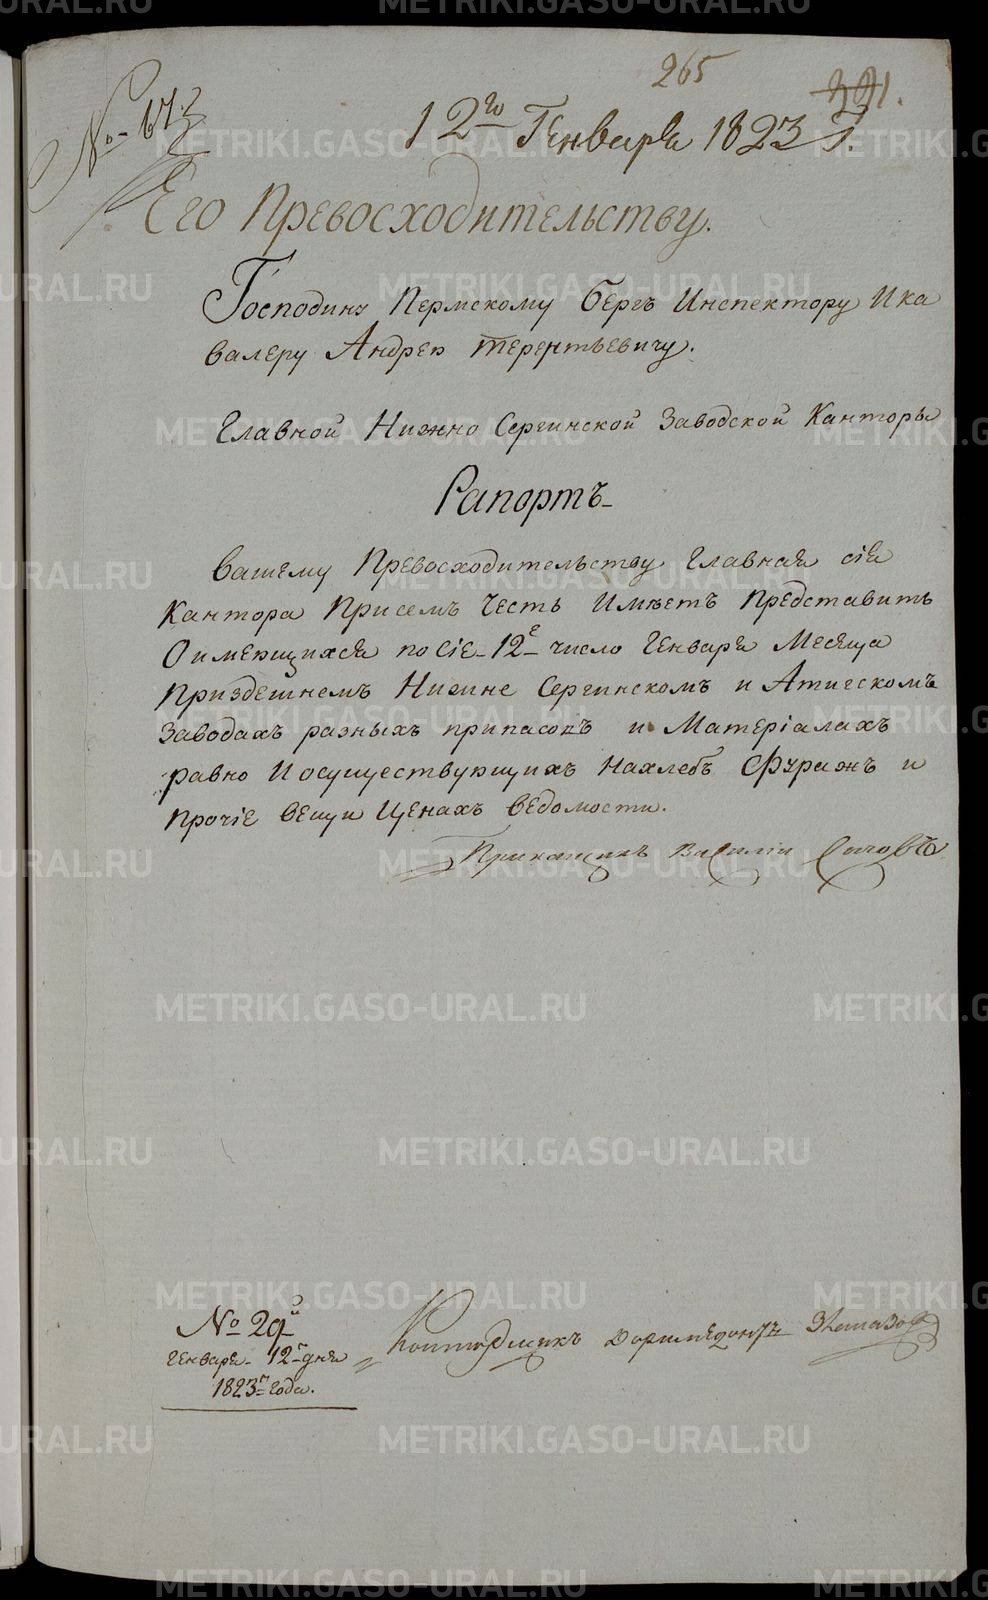 265
391.
№ 673
12го Генваря 1823 Г.
Его Превосходительству.
Господину Пермскому бергъ Инспектору Ика
валеру Андрею Терентьевичу.
Главной Нижно Сергинской Заводской Канторы
Рапортъ
Вашему Превосходительству Главная сія
Кантора Присемъ Честь Имѣетъ Представить
Оимеющихся по Сіе 12е число Генваря Месяца
Приздешнемъ Нижне Сергинскомъ и Атигскомъ
Заводахъ разныхъ припасовъ и Матеріалахъ
равно Иосуществующихъ Нахлебъ Фуражъ и
прочіе вещи Ценахъ ведомости.
Прикащикъ Василіи
№ 29й
Генваря 12го дня
1823го года.
Контодщикъ Доримедонтъ
METRIKI.GASO-URAL.RU